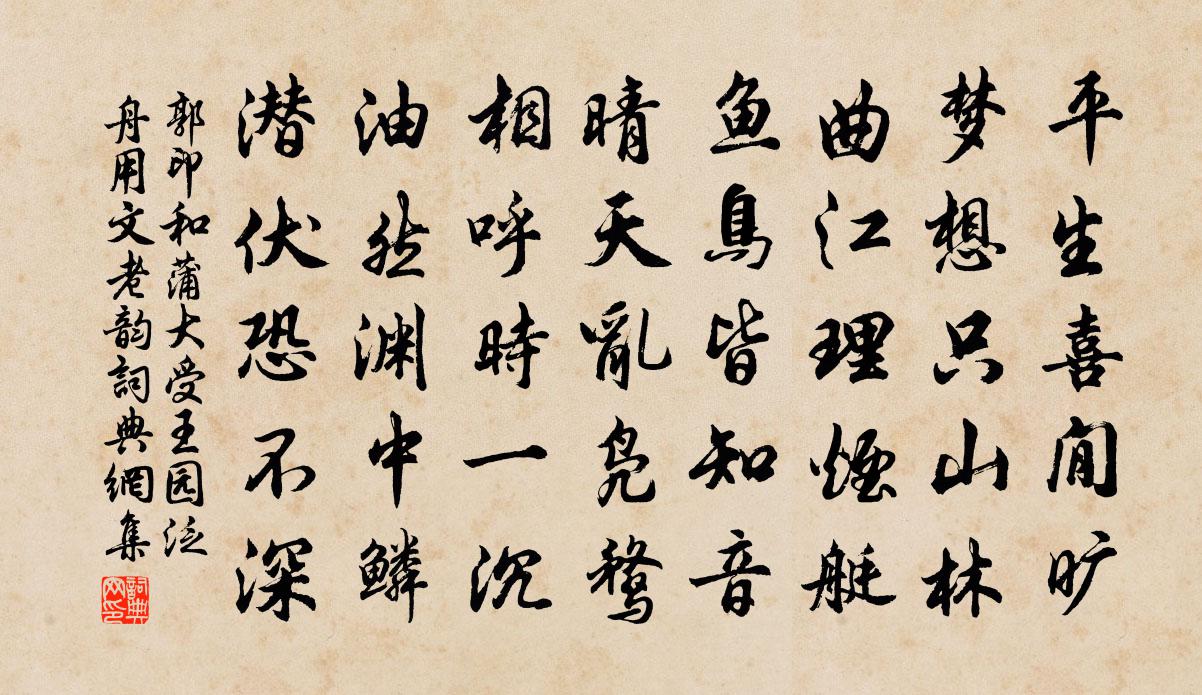 平生喜閒旷
梦想只山林
曲江理煙艇
鱼鳥皆知音
晴天亂凫鶩
相呼時一沉
油然渊中鱗
潜伏恐不深
郭印和蒲大受王园泛
舟用文老韵詞典網集
詞典
网印